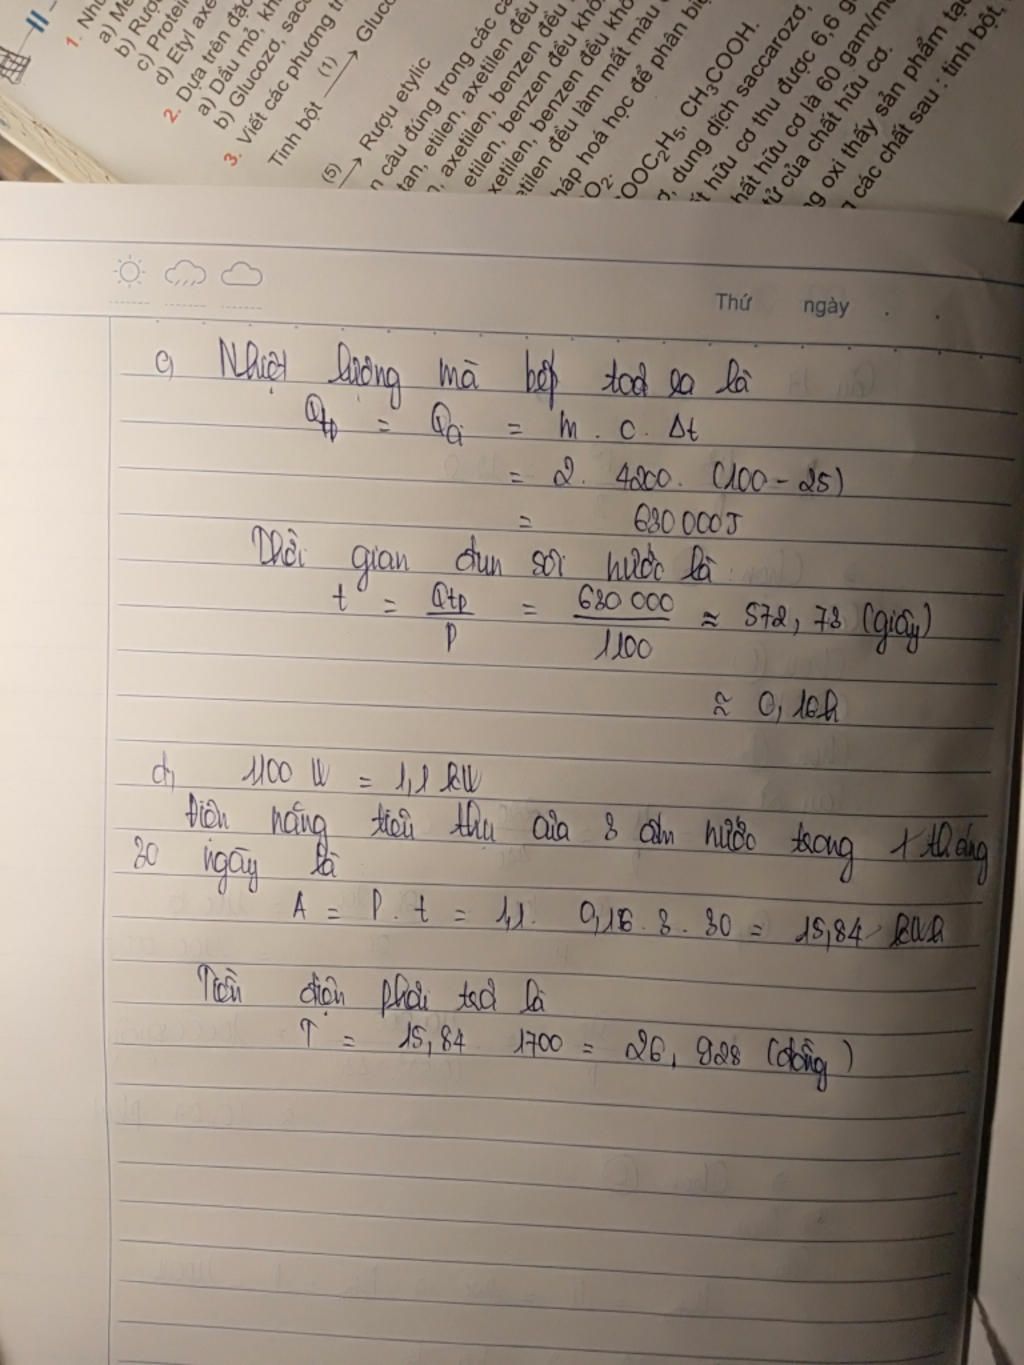 II
1. Nhữ
a) Mê
b) Rượ
c) Protein
d) Etyl axe
2. Dựa trên đặc
a) Dầu mỏ, kh
b) Glucozơ, sacc
3. Viết các phương tr
Tinh bột (1) Gluco
(5) Rượu etylic
n câu đúng trong các câ
tan, etilen, axetilen đều
n, axetilen, benzen đều
etilen, benzen đều khô
xetilen, benzen đều khô
etilen đều làm mất màu
háp hoá học để phân biệ
O₂.
OOC₂H₅, CH₃COOH.
ơ, dung dịch saccarozơ,
ất hữu cơ thu được 6,6 g
hất hữu cơ là 60 gam/mo
tử của chất hữu cơ.
ng oxi thấy sản phẩm tạo
các chất sau : tinh bột,
Thứ ngày
c, Nhiệt lượng mà bếp toả ra là
Qtp = Qi = m . c . Δt
= 2. 4200. (100 - 25)
= 630 000J
Thời gian đun sôi nước là:
t = Qtp / P = 630 000 / 1100 ≈ 572, 73 (giây)
≈ 0, 16h
d, 1100 W = 1,1 kW
Điện năng tiêu thụ của 3 ấm nước trong 1 tháng
30 ngày là
A = P. t = 1,1. 0,16. 3. 30 = 15,84 kWh
Tiền điện phải trả là
T = 15, 84 1700 = 26, 928 (đồng)